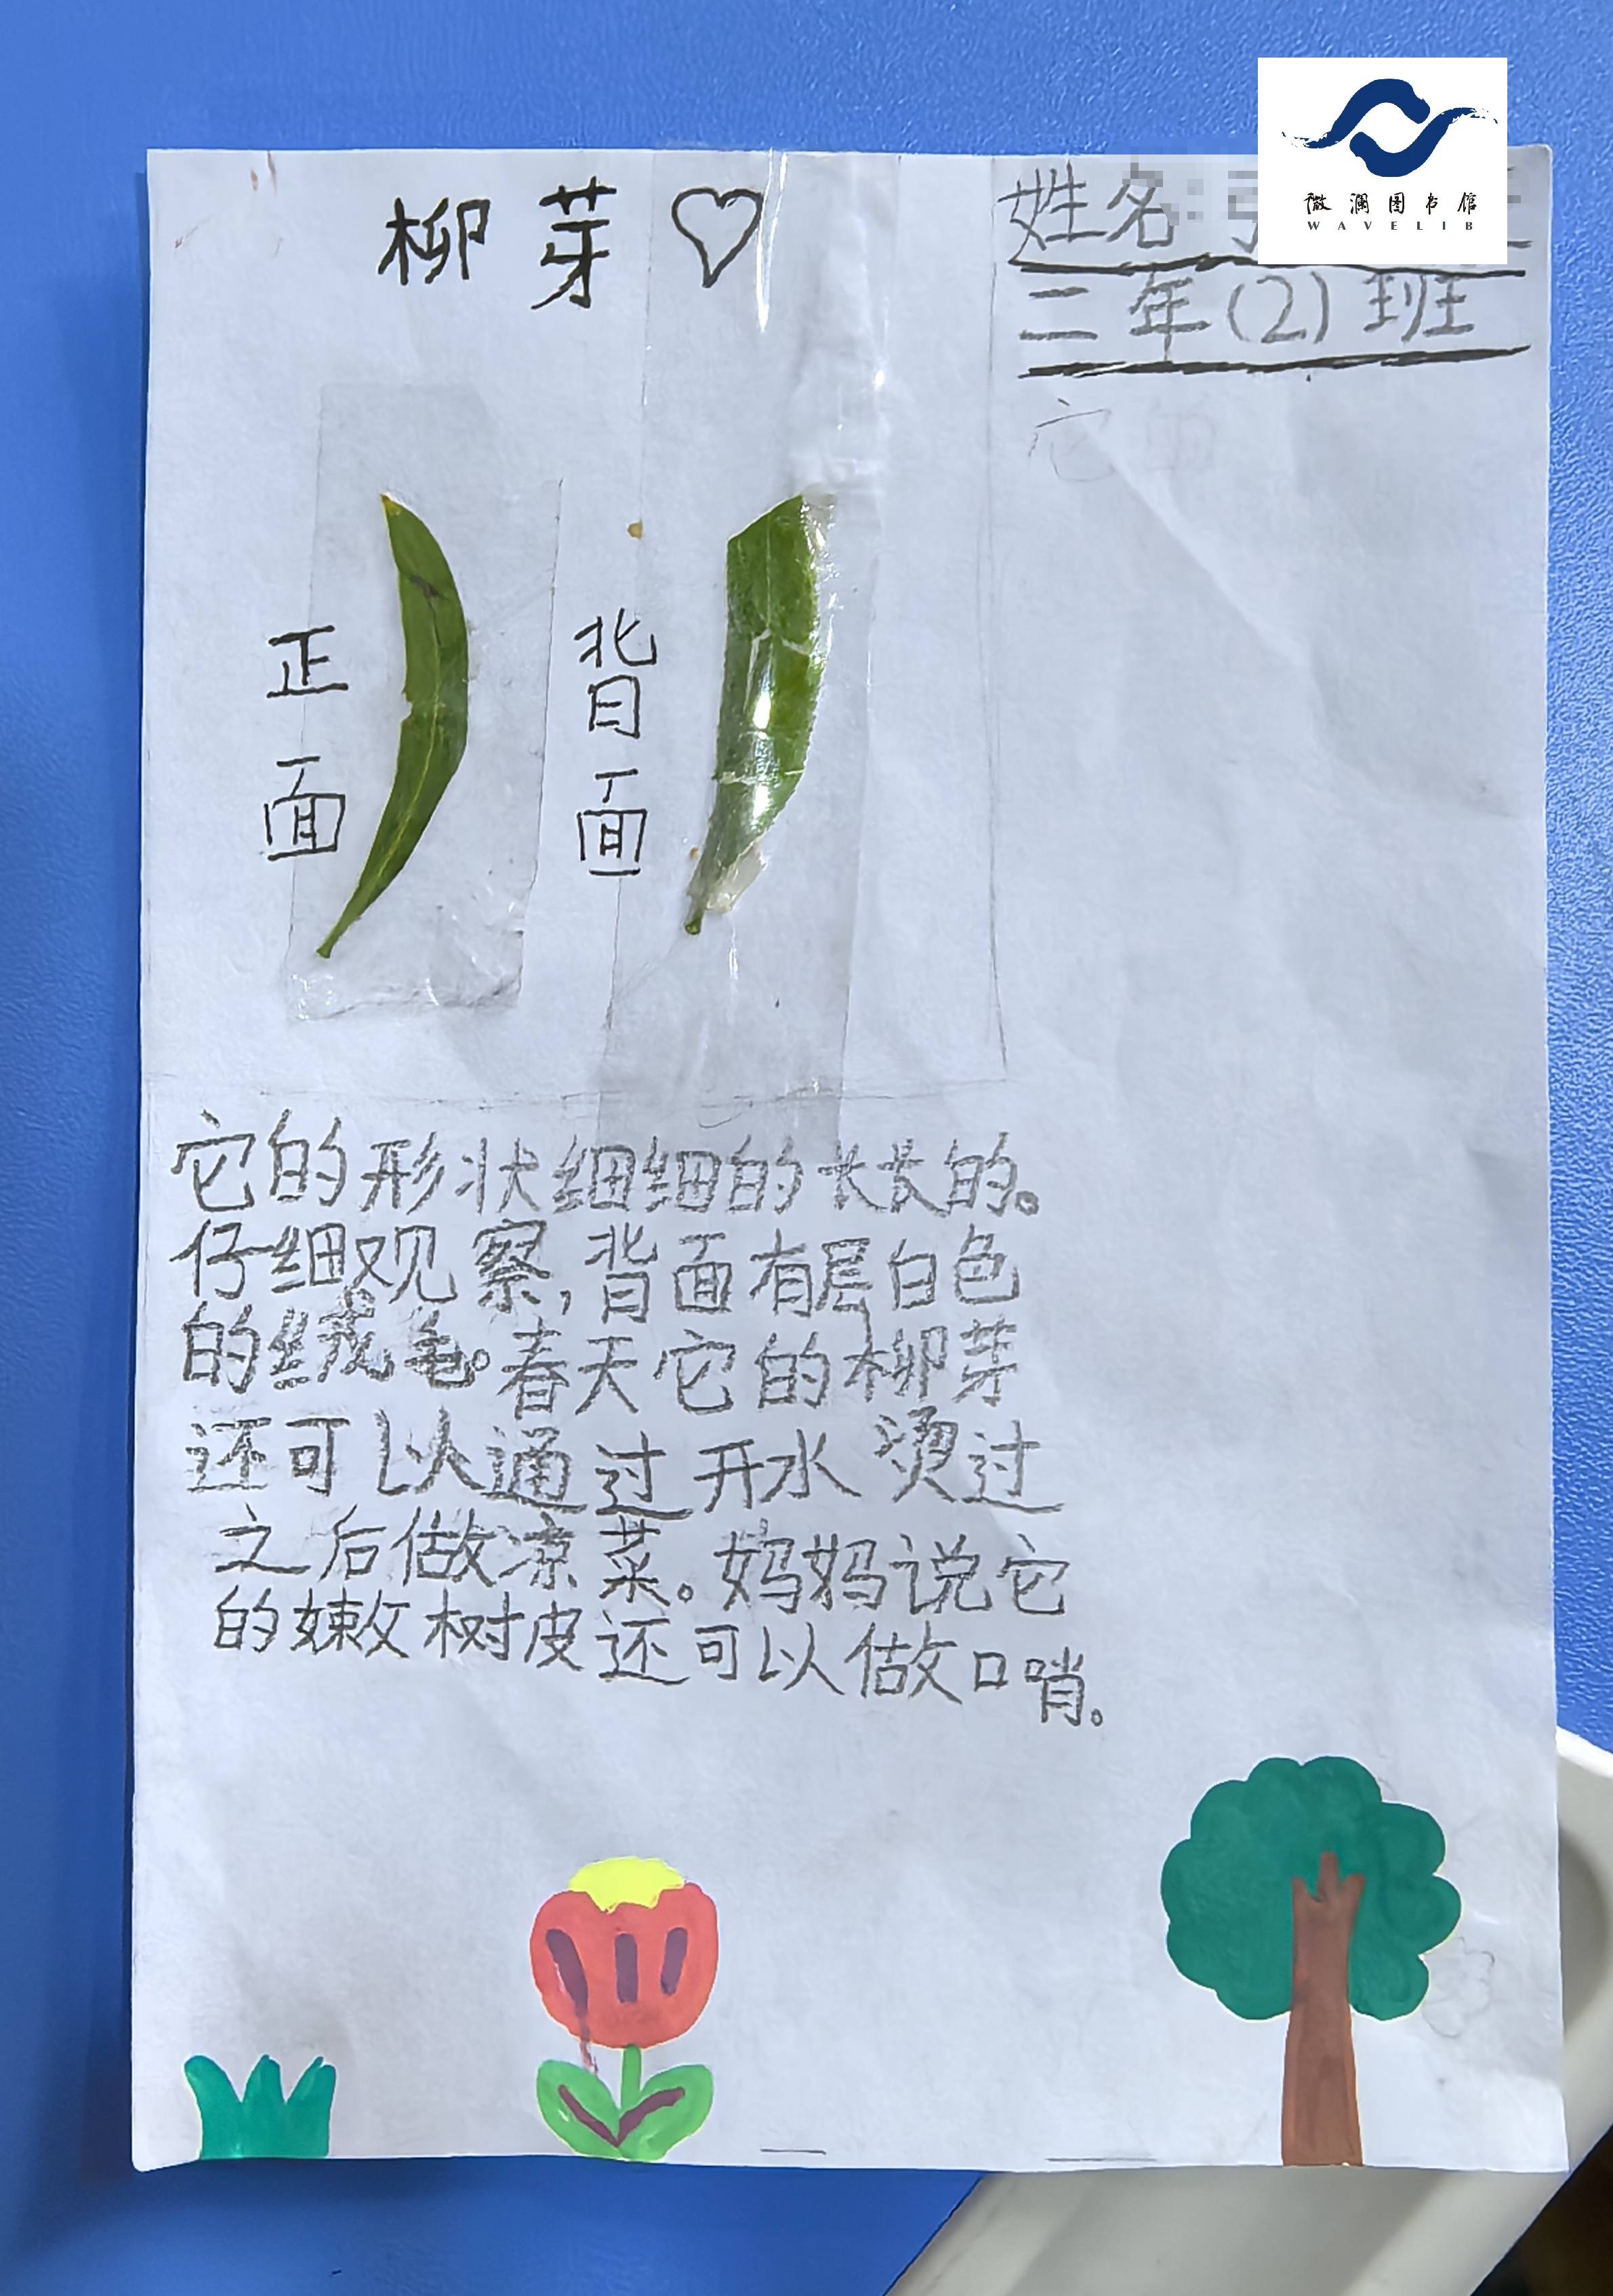 柳芽
姓名:
二年(2)班
微澜图书馆
WAVELIB
正面
背面
它的形状细细的长长的。
仔细观察,背面有层白色
的绒毛。春天它的柳芽
还可以通过开水烫过
之后做凉菜。妈妈说它
的嫩树皮还可以做口哨。